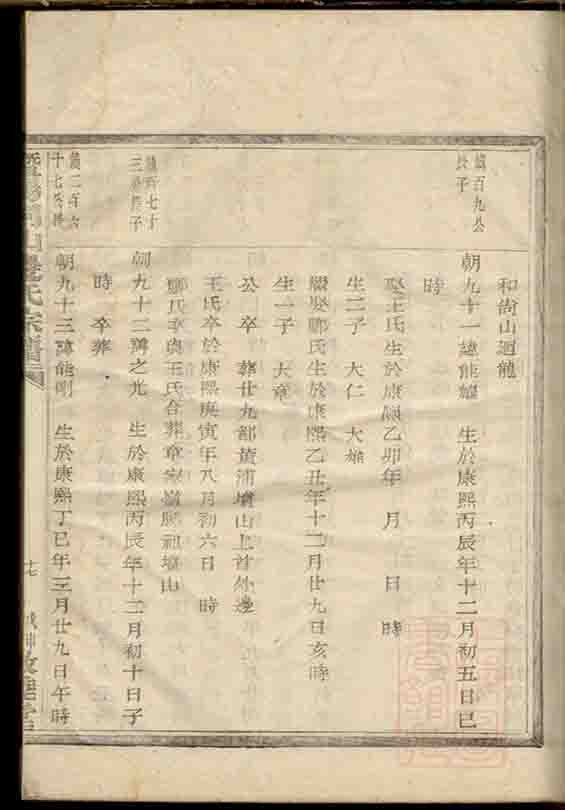 和尚山迴龍
鎮百九公
長子
朝九十一諱能耀 生於康熙丙辰年十二月初五日巳
時
娶王氏生於康熙乙卯年 月 日 時
生二子 大仁 大雄
繼娶鄭氏生於康熙乙丑年十二月廿九日亥時
生一子 大章
公 卒 葬廿九都黄浦墳山上首外邊
王氏卒於康熙庚寅年八月初六日 時
鄭氏卒與王氏合葬章家嶺勝祖墳山
百七十
三公長子
朝九十二諱之光 生於康熙丙辰年十二月初十日子
時 卒葬
鎮二百六
十七公長
朝九十三諱能剛 生於康熙丁巳年三月廿九日午時
氏宗譜
十七